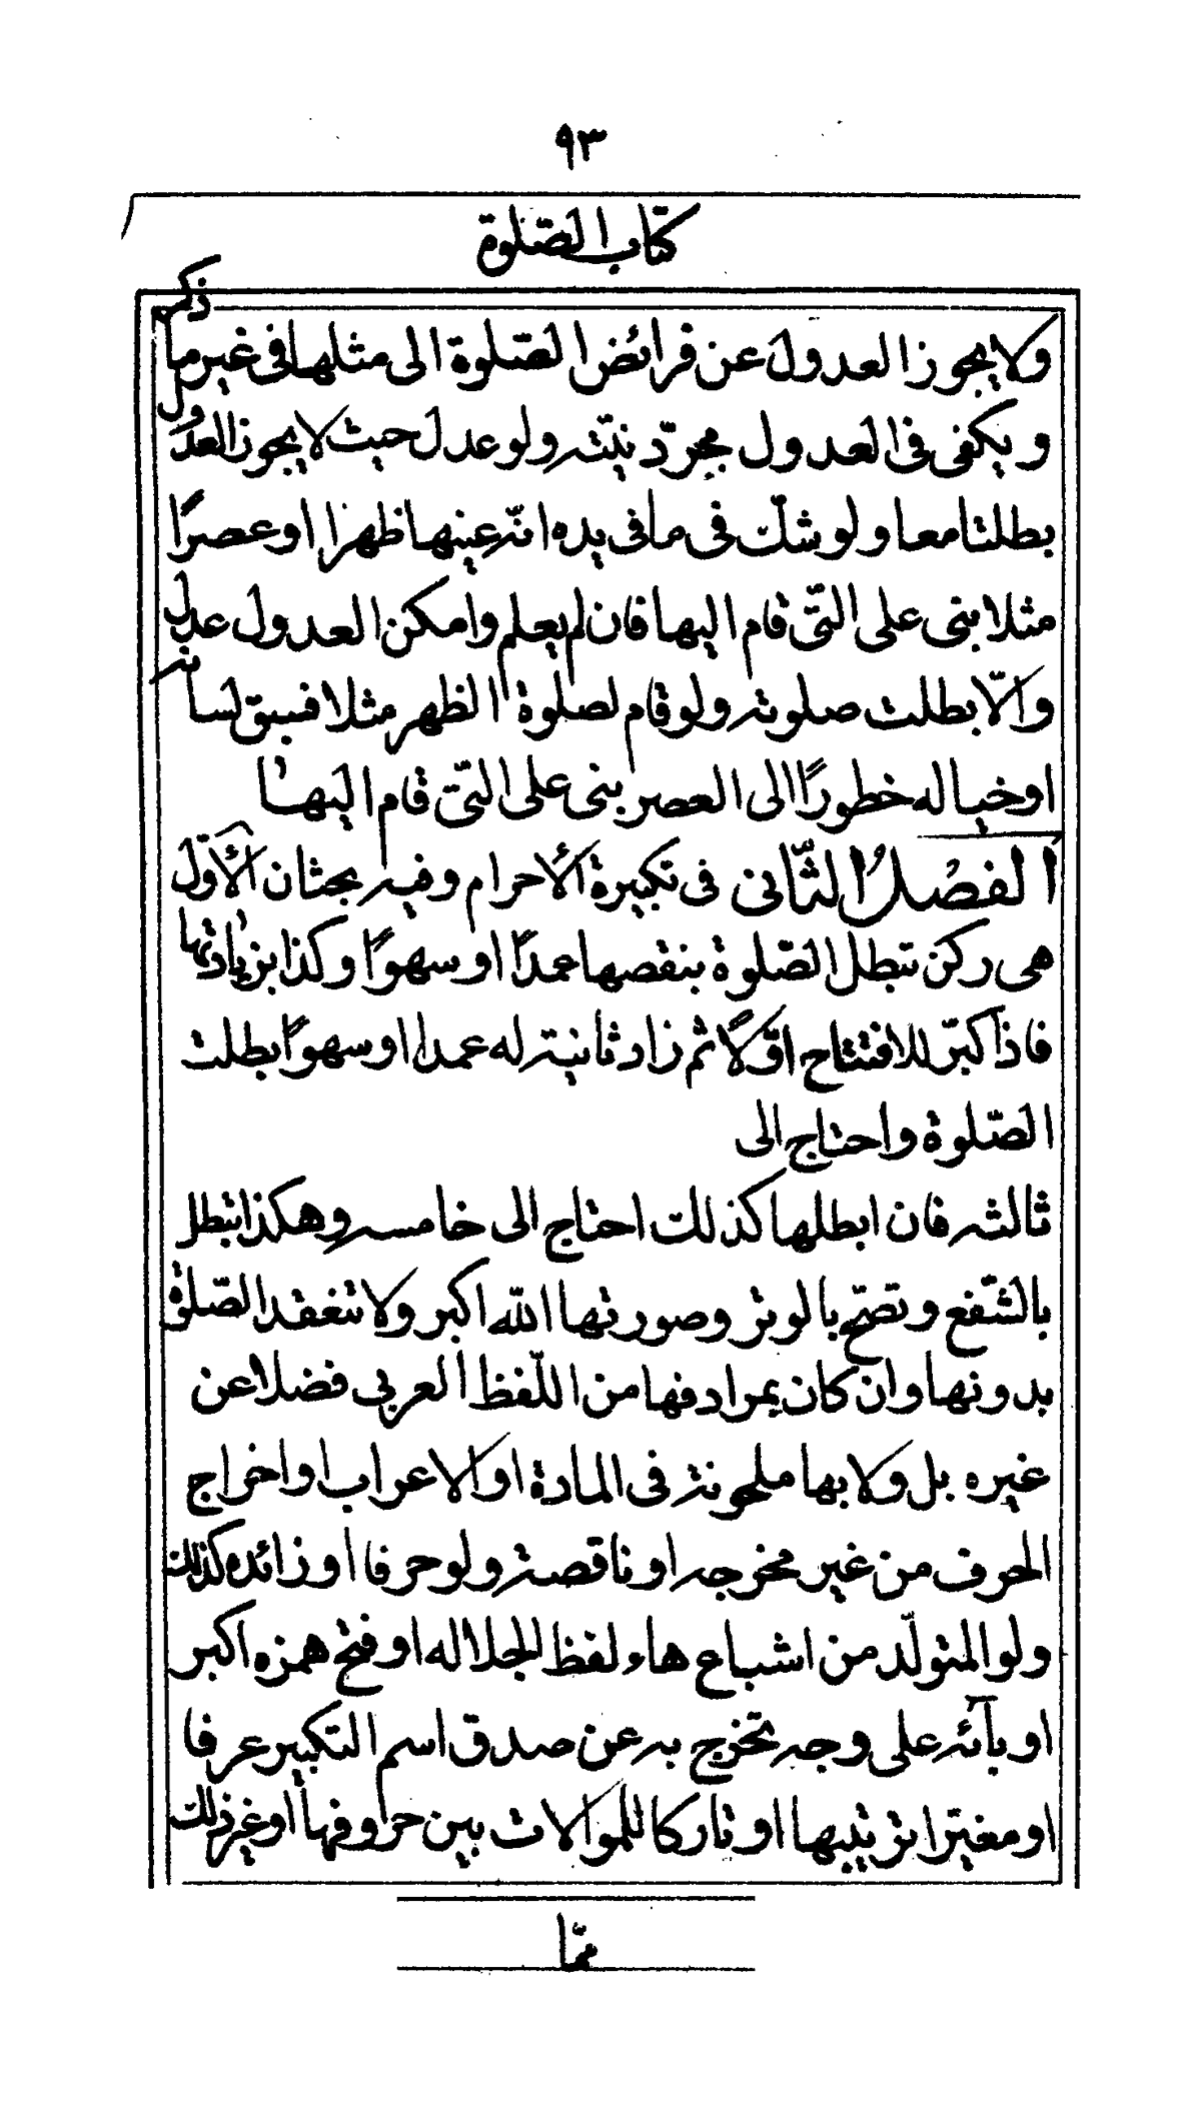 ٩٣
كتاب الصّلوة
ولا يجوز العدول عن فرائض الصّلوة الى مثلها فى غير ما ذكر
و يكفى فى العدول مجرّد نيّته ولو عدل حيث لا يجوز العدول
بطلتا معا ولو شكّ فى ما فى يده انّه عينها ظهرا او عصرًا
مثلا بنى على التّى قام اليها فان لم يعلم وامكن العدول عدل
والّا بطلت صلوته ولو قام لصلوة الظهر مثلا فسبق لسانه
او خياله خطورًا الى العصر بنى على التّى قام اليها
الفصلُ الثّانى فى تكبيرة الأحرام وفيه بحثان الأوّل
هى ركن تبطل الصّلوة بنقصها عمدًا او سهوًا وكذا بزيادتها
فاذا كبّر للافتتاح اوّلًا ثم زاد ثانية له عمدا او سهوًا بطلت
الصّلوة واحتاج الى
ثالثه فان ابطلها كذلك احتاج الى خامسه وهكذا تبطل
بالشّفع وتصحّ بالوتر وصورتها اللّه اكبر ولا تنعقد الصّلوة
بدونها وان كان بمرادفها من اللّفظ العربى فضلا عن
غيره بل ولا بها ملحونة فى المادة او الاعراب او اخراج
الحرف من غير مخرجه او ناقصة ولو حرفا او زائده كذلك
ولو المتولّد من اشباع هاء لفظ الجلاله او فتح همزه اكبر
او بآئه على وجه تخرج به عن صدق اسم التكبير عرفا
او مغيّرا ترتيبها او تاركا للموالات بين حروفها او غير ذلك
ممّا